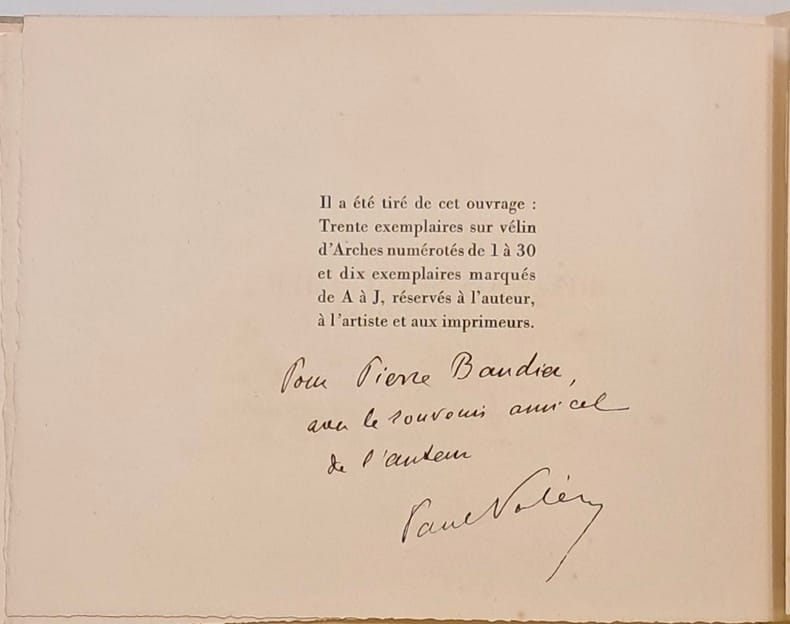 Il a été tiré de cet ouvrage :
Trente exemplaires sur vélin
d'Arches numérotés de 1 à 30
et dix exemplaires marqués
de A à J, réservés à l'auteur,
à l'artiste et aux imprimeurs.
Pour Pierre
avec le souvenir amical
de l'auteur
Paul Valéry